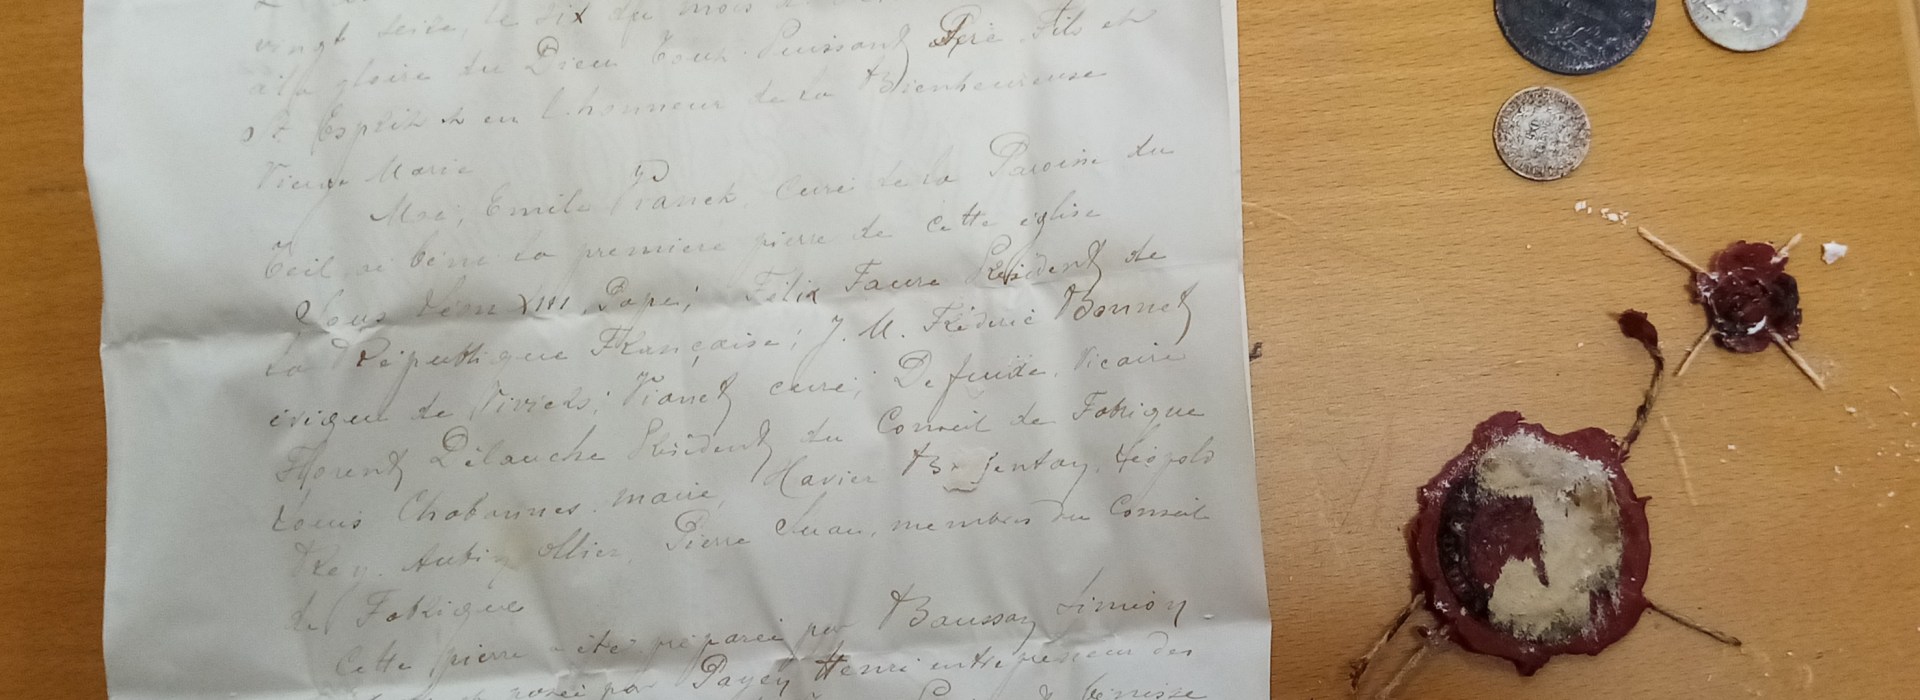 vingt seize, le six du mois
à la gloire du Dieu Tout-Puissant Père Fils et
St Esprit et en l'honneur de la Bienheureuse
Vierge Marie
Moi, Emile Vianet, curé de la Paroisse du
Teil ai béni la première pierre de cette église
Sous Léon XIII, Pape; Félix Faure Président de
la République Française; J. M. Fréderic Bonnet
évêque de Viviers; Vianet curé; Vicaire
Florent Délauche Président du Conseil de Fabrique
Louis Chabannes maire, Xavier Léopold
Rey. Aubin Ollier, Pierre membres du Conseil
de Fabrique
Cette pierre a été préparée par Baussan Siméon
posée par Payen Henri entrepreneur des